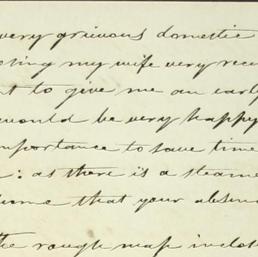 very grievous domestic
my wife very rece
to give me an early
would be very happy
mportance to save time
: as there is a steame
time that your absen
the rough map inclos